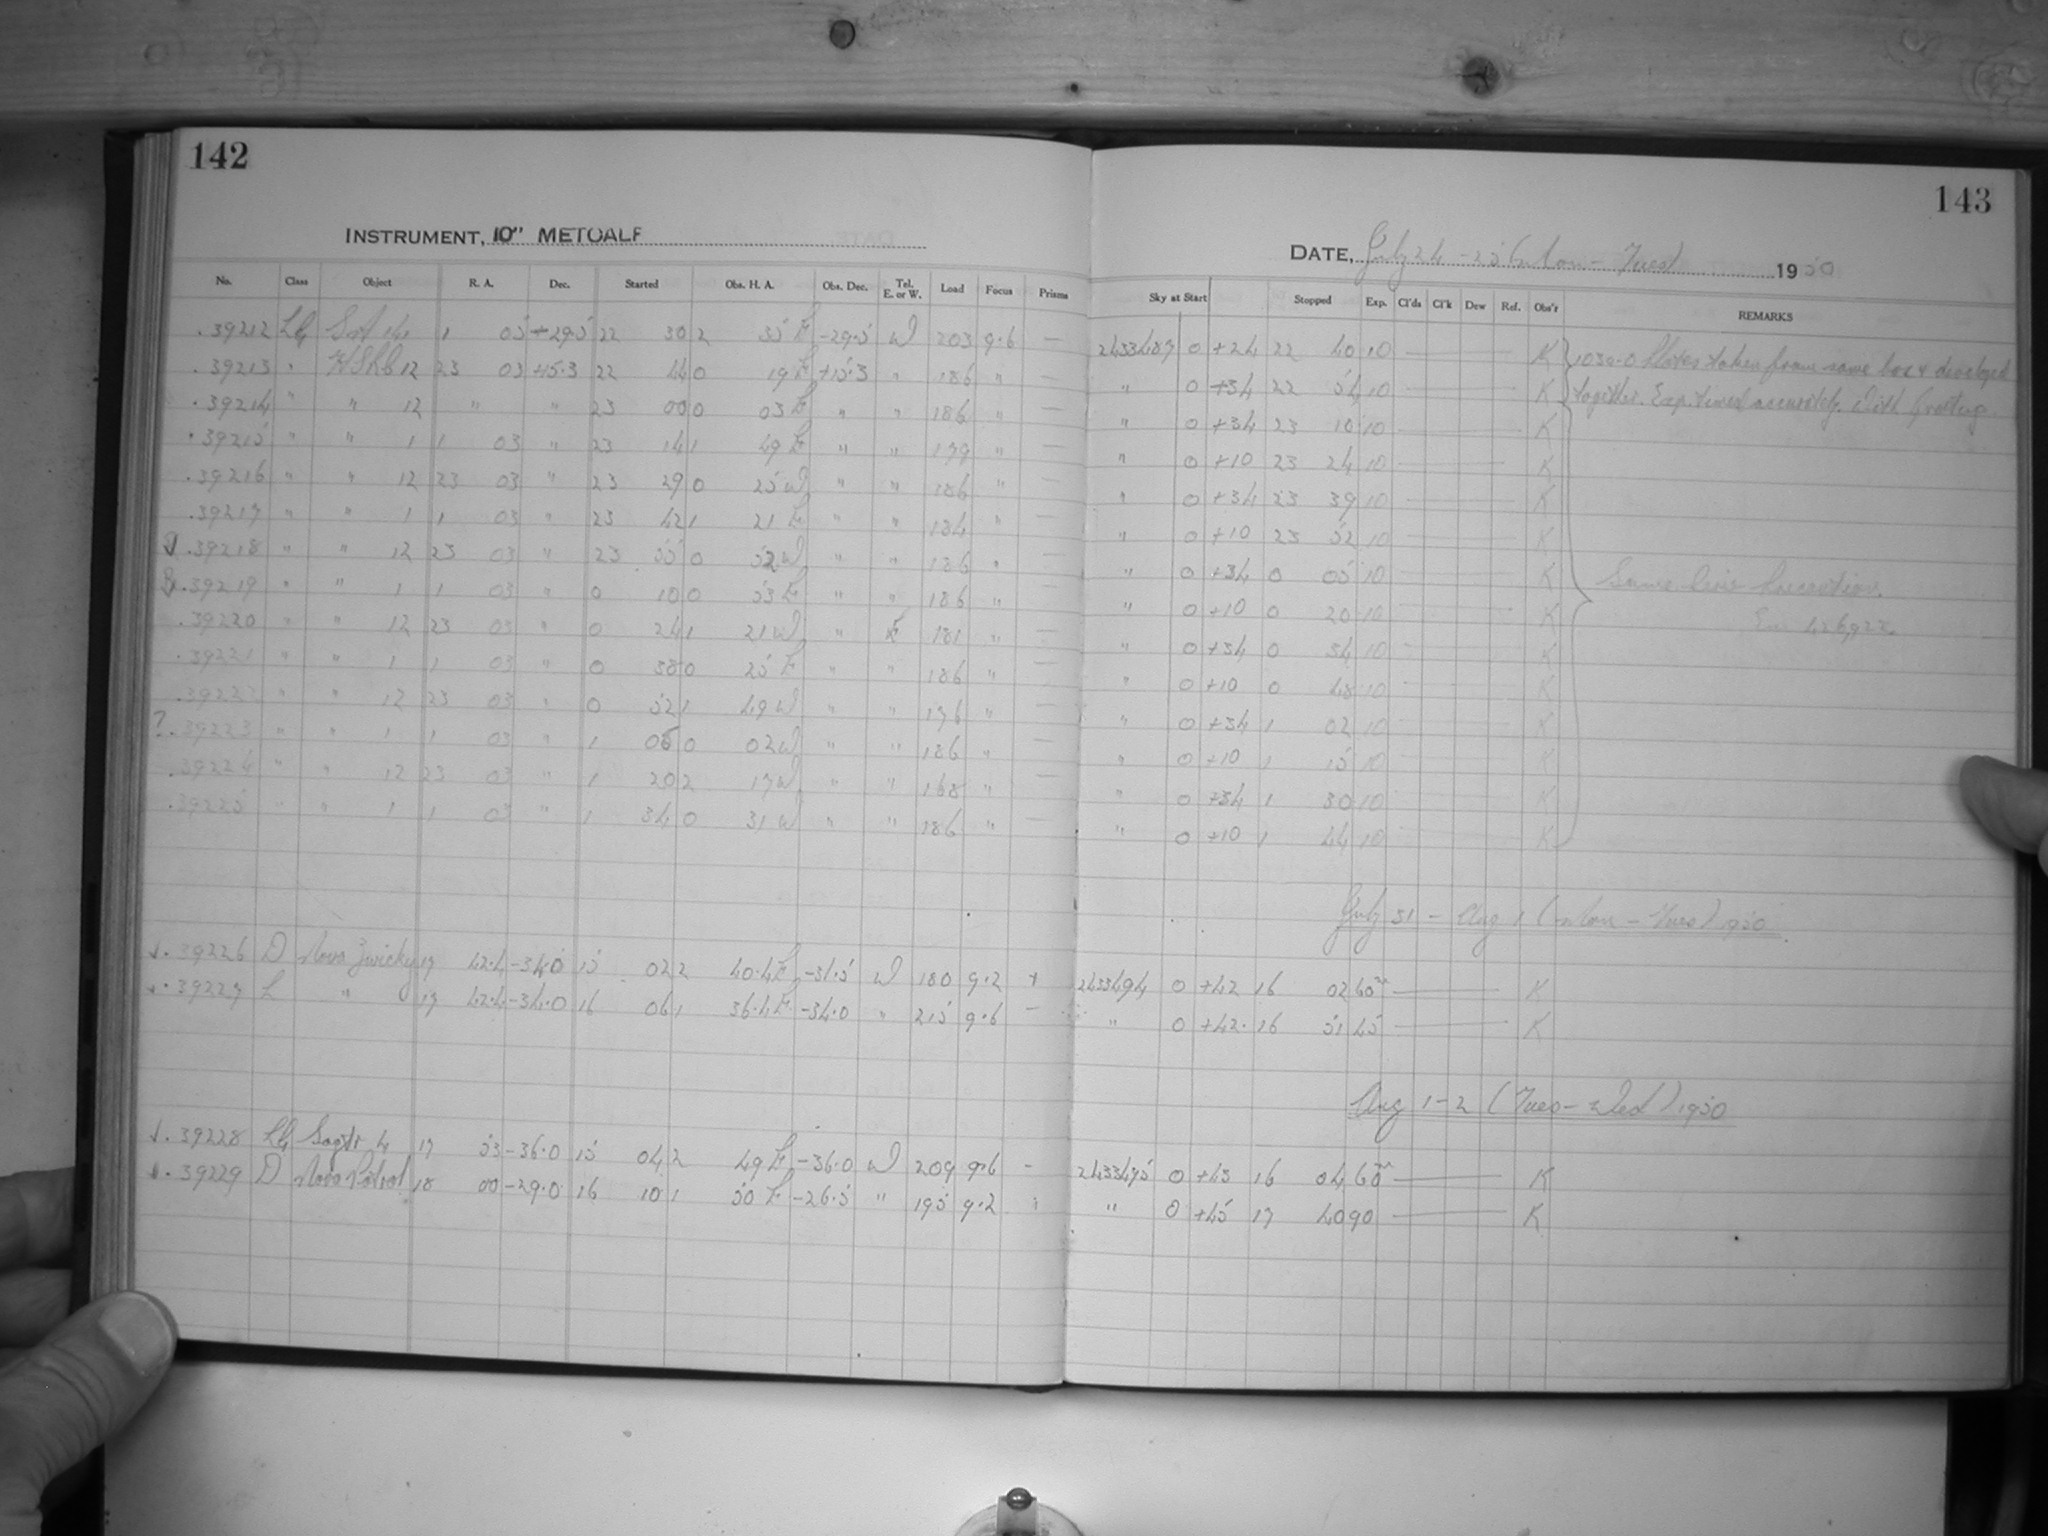 142
INSTRUMENT, 10" METCALF
No. Class Object R. A. Dec. Started Obs. H. A. Obs. Dec. Tel. E. or W. Load Focus Prisms
.39212 1 05 +29.5 22 30 2 35 E -29.5 W 203 9.6 —
.39213 " 12 23 03 +15.3 22 44 0 19 E +15.3 " 186 " —
.39214 " " 12 " " 23 00 0 03 E " " 186 " —
.39215 " " 1 1 03 " 23 14 1 49 E " " 179 " —
.39216 " " 12 23 03 " 23 29 0 25 W " " 186 " —
.39217 " " 1 1 03 " 23 42 1 21 E " " 184 " —
.39218 " " 12 23 03 " 23 55 0 52 W " " 186 " —
.39219 " " 1 1 03 " 0 10 0 53 E " " 186 " —
.39220 " " 12 23 03 " 0 24 1 21 W " E 181 " —
.39221 " " 1 1 03 " 0 38 0 25 E " " 186 " —
.39222 " " 12 23 03 " 0 52 1 49 W " " 176 " —
?.39223 " " 1 1 03 " 1 05 0 02 W " " 186 " —
.39224 " " 12 23 03 " 1 20 2 17 W " " 168 " —
.39225 " " 1 1 03 " 1 34 0 31 W " " 186 " —
.39226 D Nova Zwicky 17 42.4 -34.0 15 02 2 40.4 E -31.5 W 180 9.2 +
.39227 L " 17 42.4 -34.0 16 06 1 36.4 E -34.0 " 215 9.6 —
.39228 Sagtr 4 17 53 -36.0 15 04 2 49 E -36.0 W 209 9.6 -
.39229 D Nova Patrol 18 00 -29.0 16 10 1 50 E -26.5 " 195 9.2
143
DATE, July 24 - 25 (Mon - Tues) 1950
Sky at Start Stopped Exp. Cl'ds Cl'k Dew Ref. Obs'r REMARKS
2433487 0 +24 22 40 10 K 103a-O Plates taken from same box & developed
" 0 +34 22 54 10 K together. Exp. timed accurately. With Grating.
" 0 +34 23 10 10 K
" 0 +10 23 24 10 K
" 0 +34 23 39 10 K
" 0 +10 23 52 10 K
" 0 +34 0 05 10 K Same
" 0 +10 0 20 10 K
" 0 +34 0 34 10 K
" 0 +10 0 48 10 K
" 0 +34 1 02 10 K
" 0 +10 1 15 10 K
" 0 +34 1 30 10 K
" 0 +10 1 44 10 K
July 31 - Aug 1 (Mon - Tues) 1950
2433494 0 +42 16 02 60m K
" 0 +42 16 51 45 K
Aug 1-2 (Tues - Wed) 1950
2433495 0 +43 16 04 60m K
" 0 +45 17 40 90 K